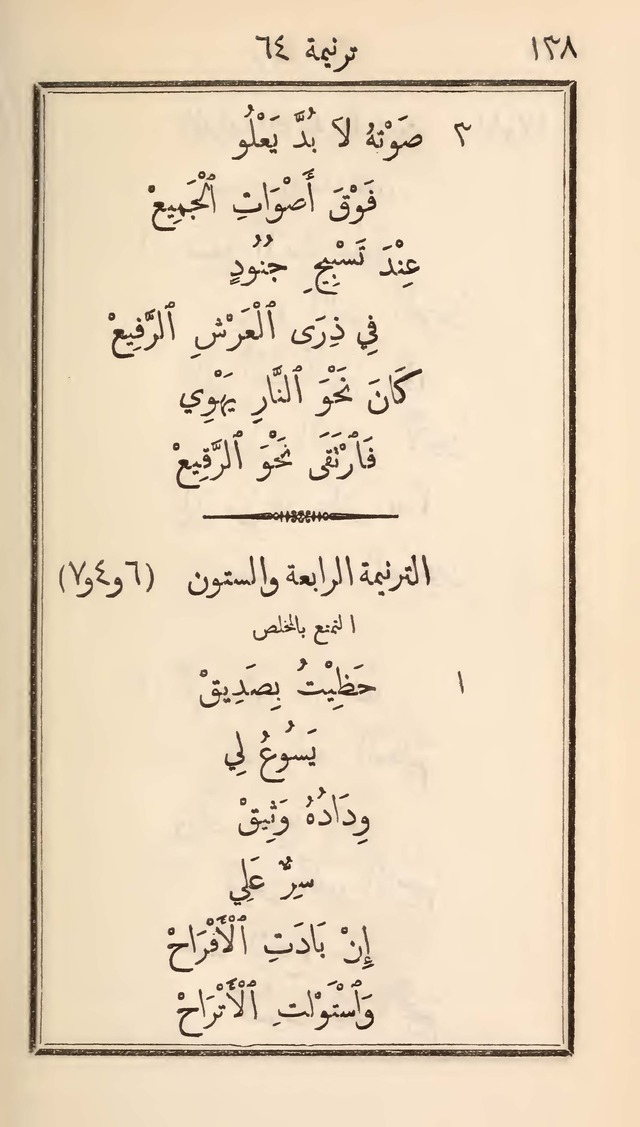 ١٣٨ ترنيمة ٦٤
٣ صَوْتهُ لاَ بُدَّ يَعْلُو
فَوْقَ أَصْوَاتِ ٱلْجَمِيعْ
عِنْدَ تَسْبِيحِ جُنُودٍ
فِي ذِرَى ٱلْعَرْشِ ٱلرَّفِيعْ
كَانَ نَحْوَ ٱلنَّارِ يَهْوِي
فَٱرْتَقَى نَحْوَ ٱلرَّقِيعْ
الترنيمة الرابعة والستون (٦و٤و٧)
التمتع بالمخلص
١ حَظِيْتُ بِصَدِيقْ
يَسُوعُ لِي
وِدَادُهُ وَثِيقْ
سِرٌّ عَلِي
إِنْ بَادَتِ ٱلْأَفْرَاحْ
وَٱسْتَوْلتِ ٱلْأَتْرَاحْ